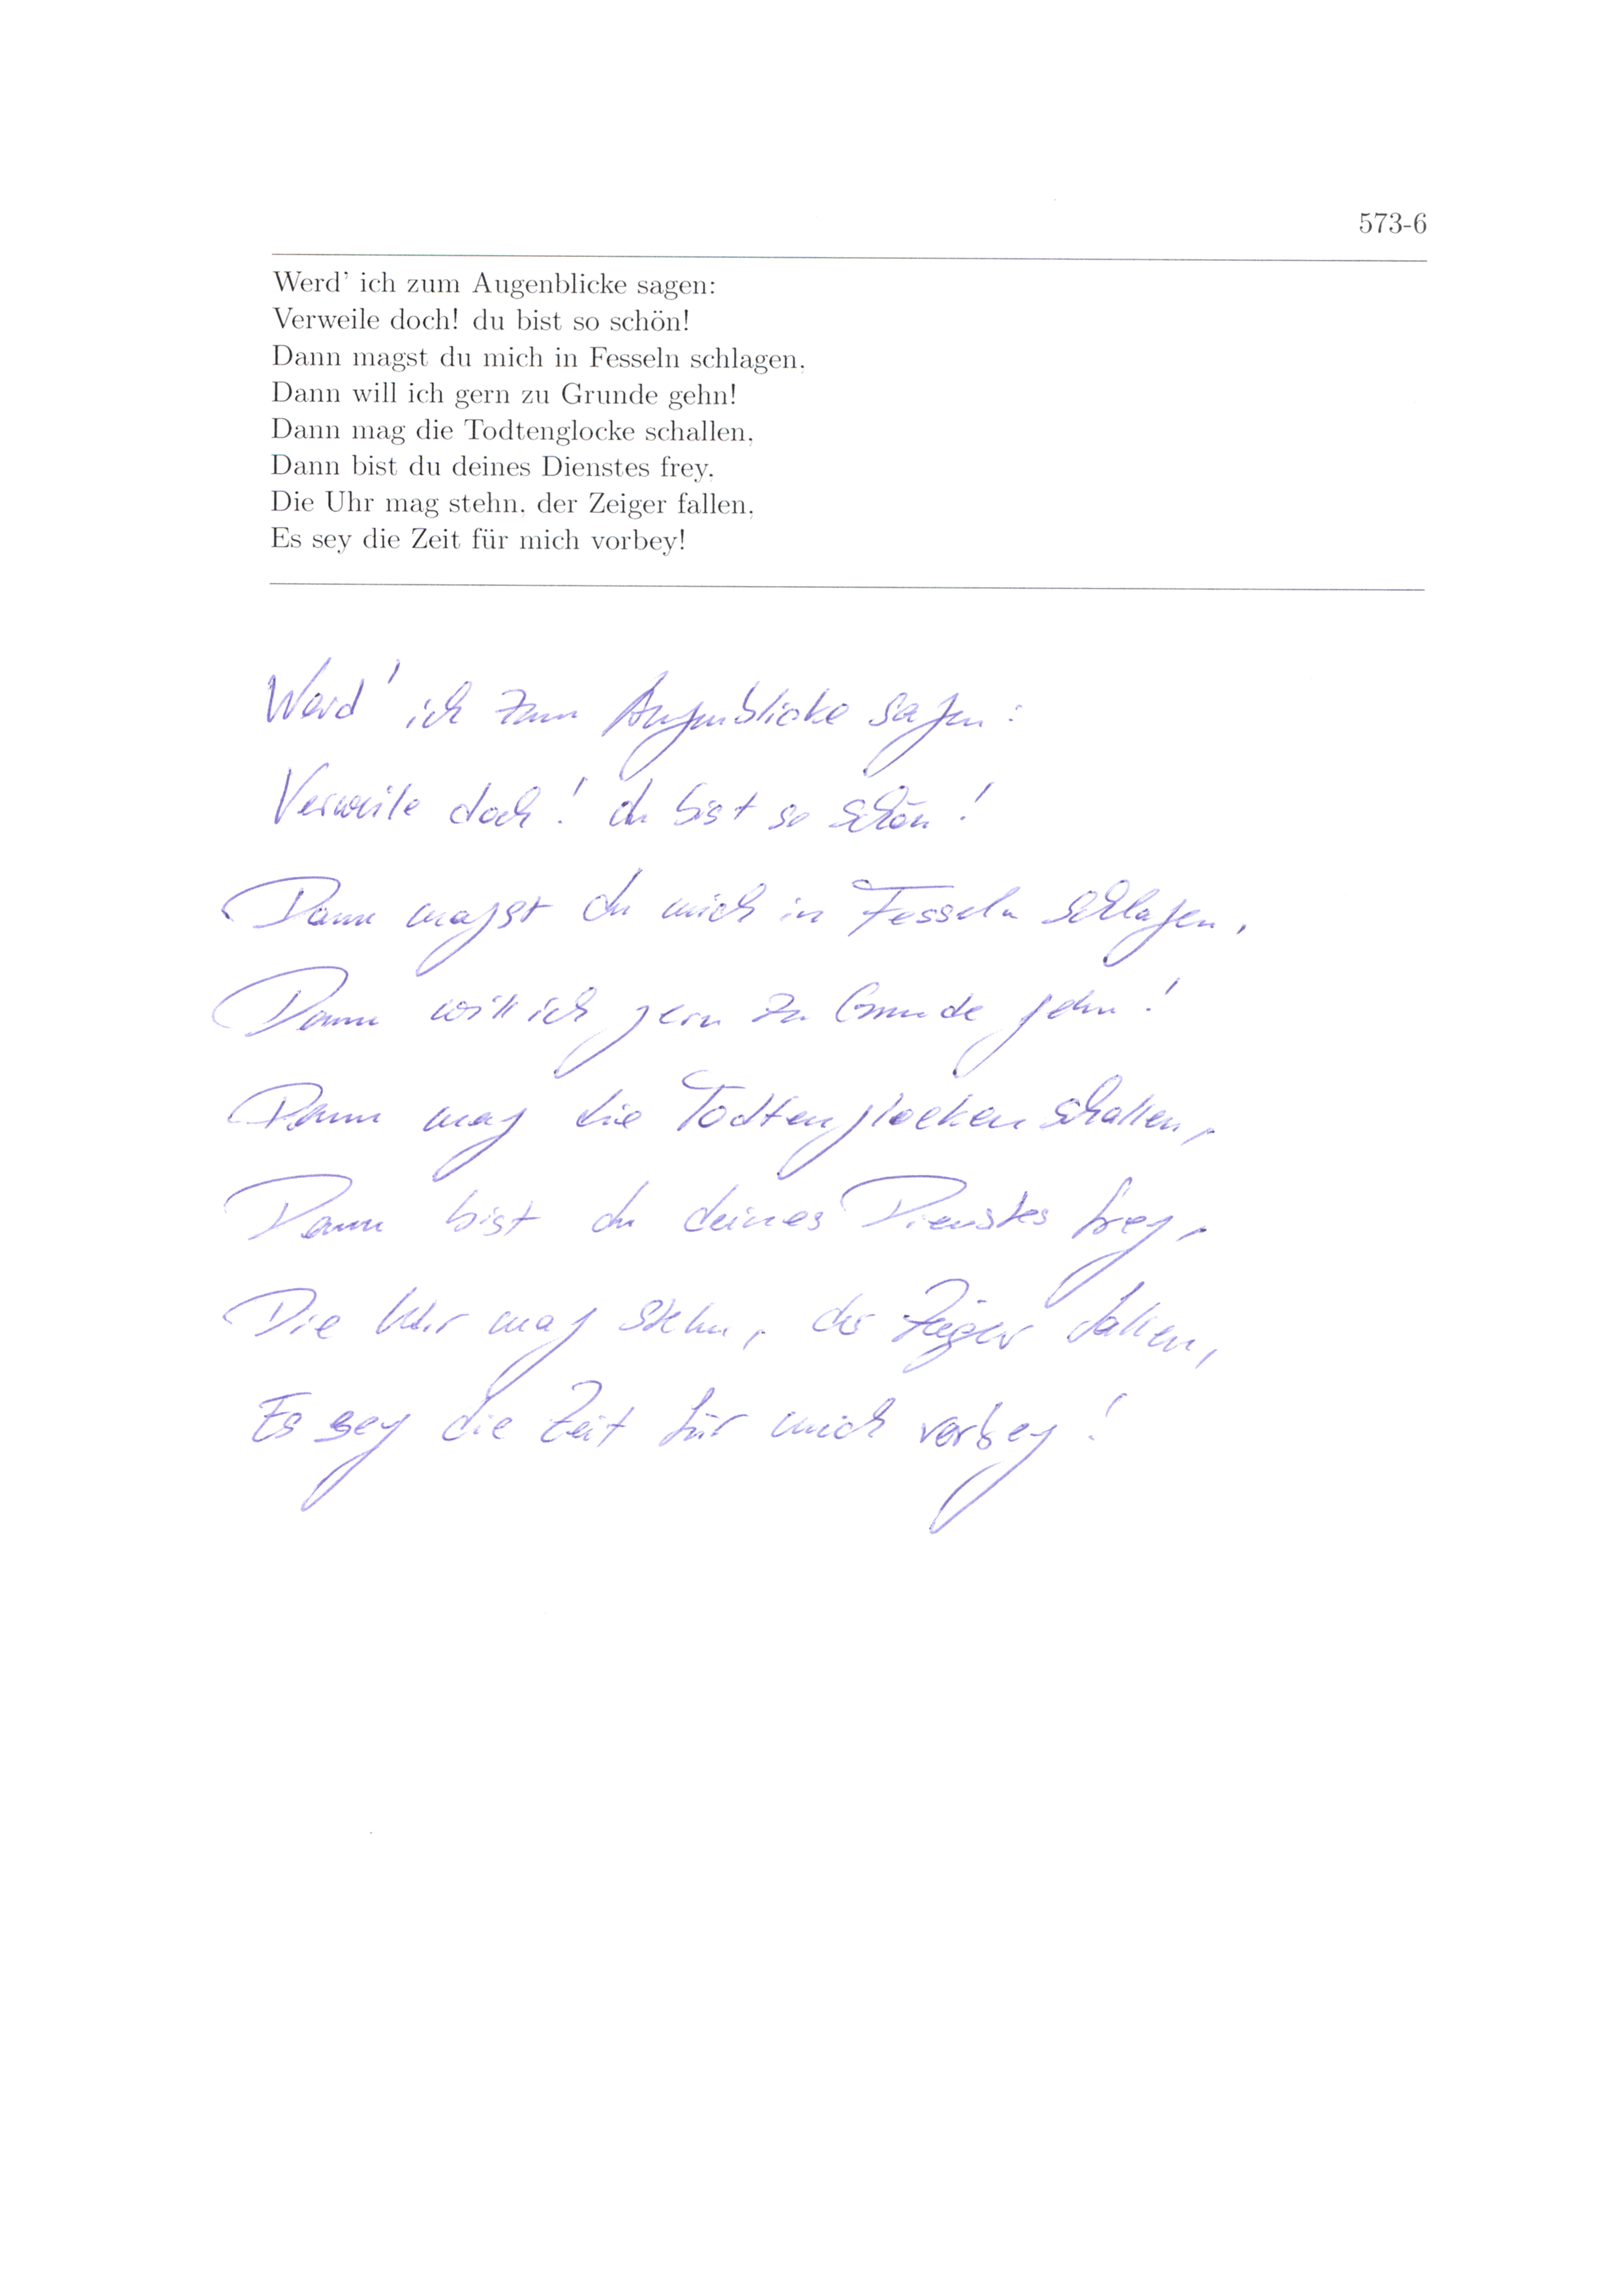 573-6
Werd' ich zum Augenblicke sagen:
Verweile doch! du bist so schön!
Dann magst du mich in Fesseln schlagen,
Dann will ich gern zu Grunde gehn!
Dann mag die Todtenglocke schallen,
Dann bist du deines Dienstes frey,
Die Uhr mag stehn, der Zeiger fallen,
Es sey die Zeit für mich vorbey!
Werd' ich zum Augenblicke sagen:
Verweile doch! du bist so schön!
Dann magst du mich in Fesseln schlagen,
Dann will ich gern zu Grunde gehn!
Dann mag die Todtenglocken schallen,
Dann bist du deines Dienstes frey,
Die Uhr mag stehn, der Zeiger fallen,
Es sey die Zeit für mich vorbey!